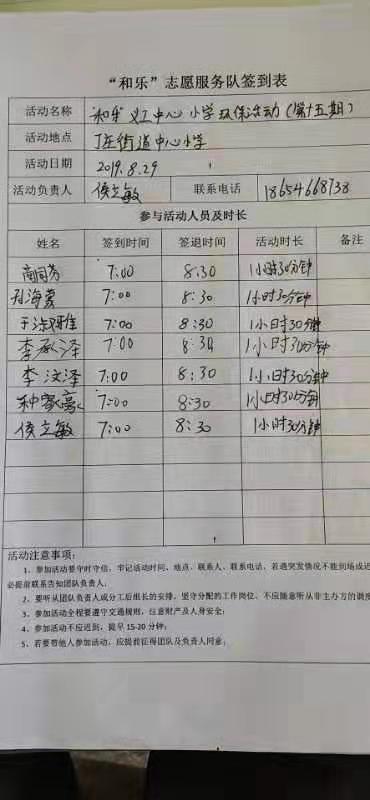 “和乐”志愿服务队签到表
活动名称 和乐义工中心小学环保活动(第十五期)
活动地点 丁庄街道中心小学
活动日期 2019.8.29
活动负责人 侯立敏 联系电话 18654668738
参与活动人员及时长
姓名 签到时间 签退时间 活动时长 备注
7:00 8:30 1小时30分钟
孙海霞 7:00 8:30 1小时30分钟
7:00 8:30 1小时30分钟
李承泽 7:00 8:30 1小时30分钟
李汶泽 7:00 8:30 1小时30分钟
7:00 8:30 1小时30分钟
侯立敏 7:00 8:30 1小时30分钟
活动注意事项:
1、参加活动要守时守信,牢记活动时间、地点、联系人、联系电话,若遇突发情况不能到场或迟
必提前联系告知团队负责人。
2、要听从团队负责人或分工后组长的安排,坚守分配的工作岗位,不应随意听从非主办方的调度
3、参加活动全程要遵守交通规则,注意财产及人身安全;
4、参加活动不应迟到,提早 15-20 分钟;
5、若要带他人参加活动,应提前征得团队及负责人同意;